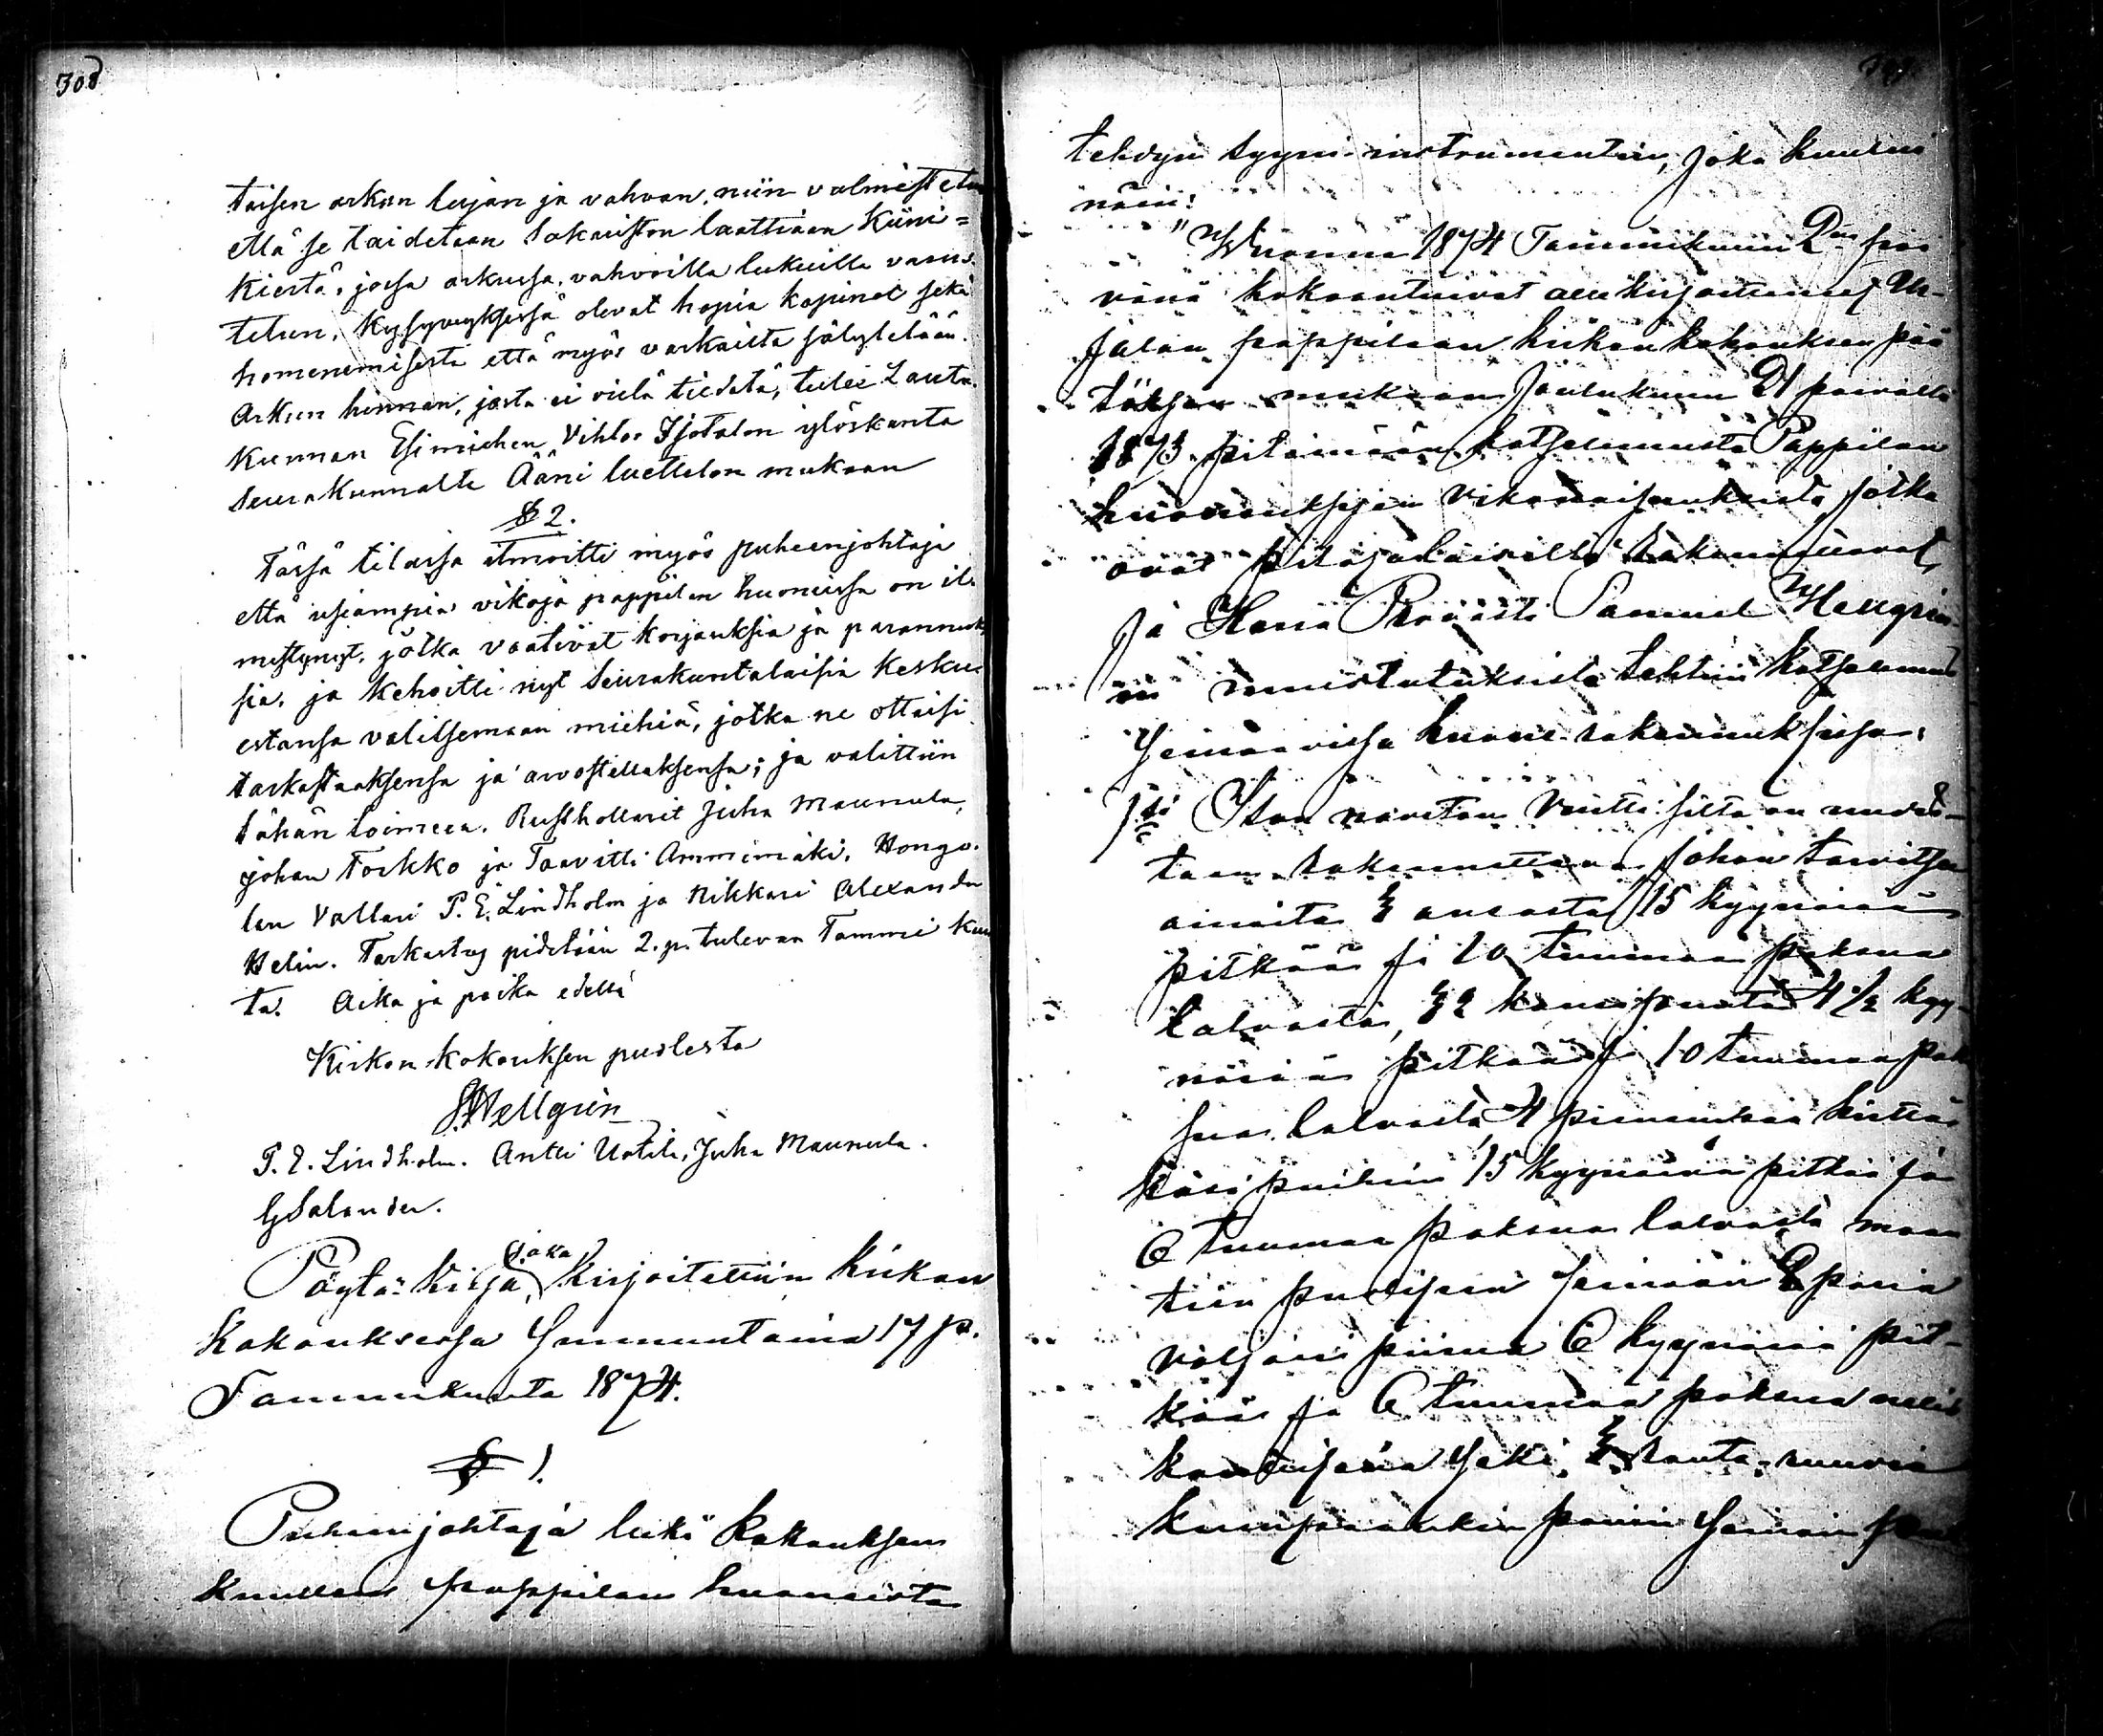 308
taisen arkun lujan ja vahvan, niin valmistetun
että se taidetaan Sakariston laattiaan Kiini=
kiertä, jossa arkussa, vahvoilla lukuilla varus-
tetun, kysymyksessä olevat hopia kapinat sekä
homenemisesta että myös varkailta säilytetään.
Arkun hinnan, josta ei vielä tiedetä, tulee Lauta
Kunnan Esimiehen Vihtor Isotalon ylöskanta
Seurakunnalta Ääni luettelon mukaan
§ 2.
Tässä tilassa ilmoitti myös puheenjohtaja
että usiampia vikoja pappilan huoneissa on il-
mestynyt, jotka vaativat korjauksia ja parannuk
sia, ja kehoitti nyt Seurakuntalaisia kesku-
estansa valitsemaan miehiä, jotka ne ottaisi
tarkastaaksensa ja arvostellaksensa; ja valittiin
tähän toimeen. Rusthollarit Juha Maunula,
Johan Torkko ja Taavitti Ammimäki, Hongo-
lan Vallari P. E. Lindholm ja Nikkari Alexander
Helin. Tarkastus pidetään 2. p. tulevan Tammi kuu
ta. Aika ja paikka edellä
Kirkon-kokouksen puolesta
S. Hellgrén
P. E. Lindholm. Antti Uotila, Juha Maunula.
G Salander.
Pöytä-kirja, joka kirjoitettiin kirkon
kokouksessa Sunnuntaina 17 p.
Tammikuuta 1874.
§ 1.
Puheenjohtaja luki kokouksen
kuullen pappilan huoneista
tehdyn syyni-instrumentin, joka kuului
näin:
"Wuonna 1874 Tammikuun 2na päi
vänä kokoontuivat allekirjoittaneet
pappilaan kirkon kokouksen pää
töksen mukaan Joulukuun 21 päivältä
1873 pitämään katselemusta Pappilan
huoneuksien vikanaisuuksista, jotka
ovat pitäjäläisiltä rakennettavat,
ja Herra Provasti Samuel Hellgrén
in muistutuksista tehtiin katselemus
seuraavissa huone-rakennuksissa:
1si Ison navetan silta on uudes-
taan rakennettava, johon tarvitsee
ainoita 15 kyynärää
pitkää ja 10 tuumaa paksua
latvasta, 4 1/2 kyy-
närää pitkää ja 10 tuumaa pak
sua latvasta 4
käsi puihin 15 kyynärää pitkää ja
6 tuumaa paksua latvasta maan
tien puolisen seinään 2 paria
6 kyynärää pit-
kää ja 6 tuumaa paksua nelis
kanttisena sekä rauta-ruuvia
kumpaankin pariin